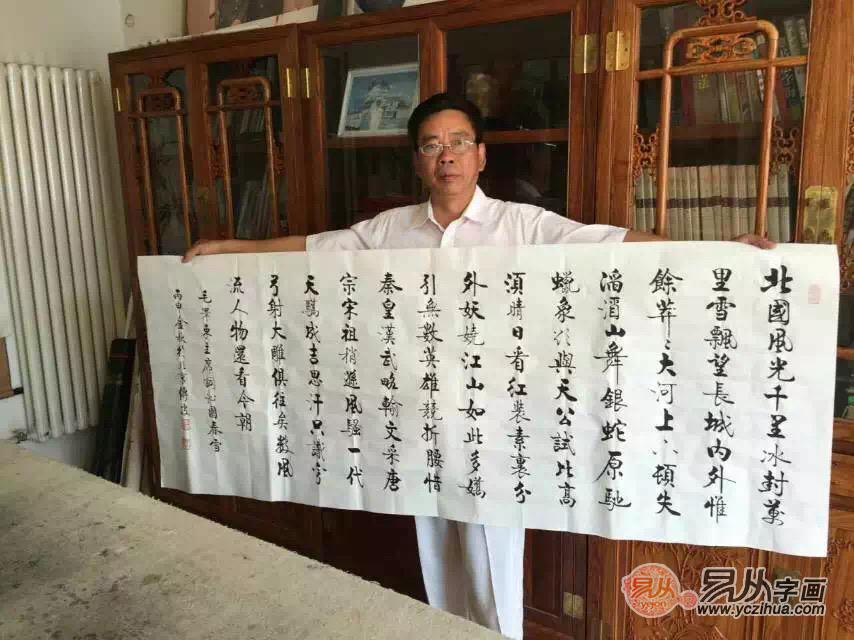 北國風光千里冰封萬
里雪飄望長城內外惟
餘莽〻大河上下頓失
滔滔山舞銀蛇原馳
蠟象欲與天公試比高
須晴日看紅裝素裹分
外妖嬈江山如此多嬌
引無數英雄競折腰惜
秦皇漢武略輸文采唐
宗宋祖稍遜風騷一代
天驕成吉思汗只識彎
弓射大雕俱往矣數風
流人物還看今朝
毛澤東主席詞沁園春雪
丙申金秋於北京
易从
易从字画
www.yczihua.com